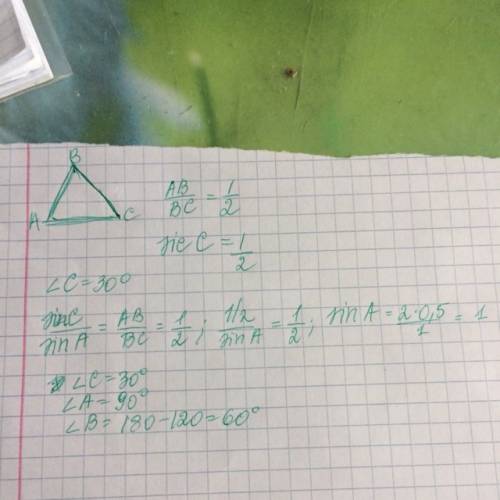 B
A C
AB/BC = 1/2
sin C = 1/2
∠C = 30°
sinC/sinA = AB/BC = 1/2 ; 1/2/sinA = 1/2 ; sin A = 2·0,5/1 = 1
∠C = 30°
∠A = 90°
∠B = 180 - 120 = 60°